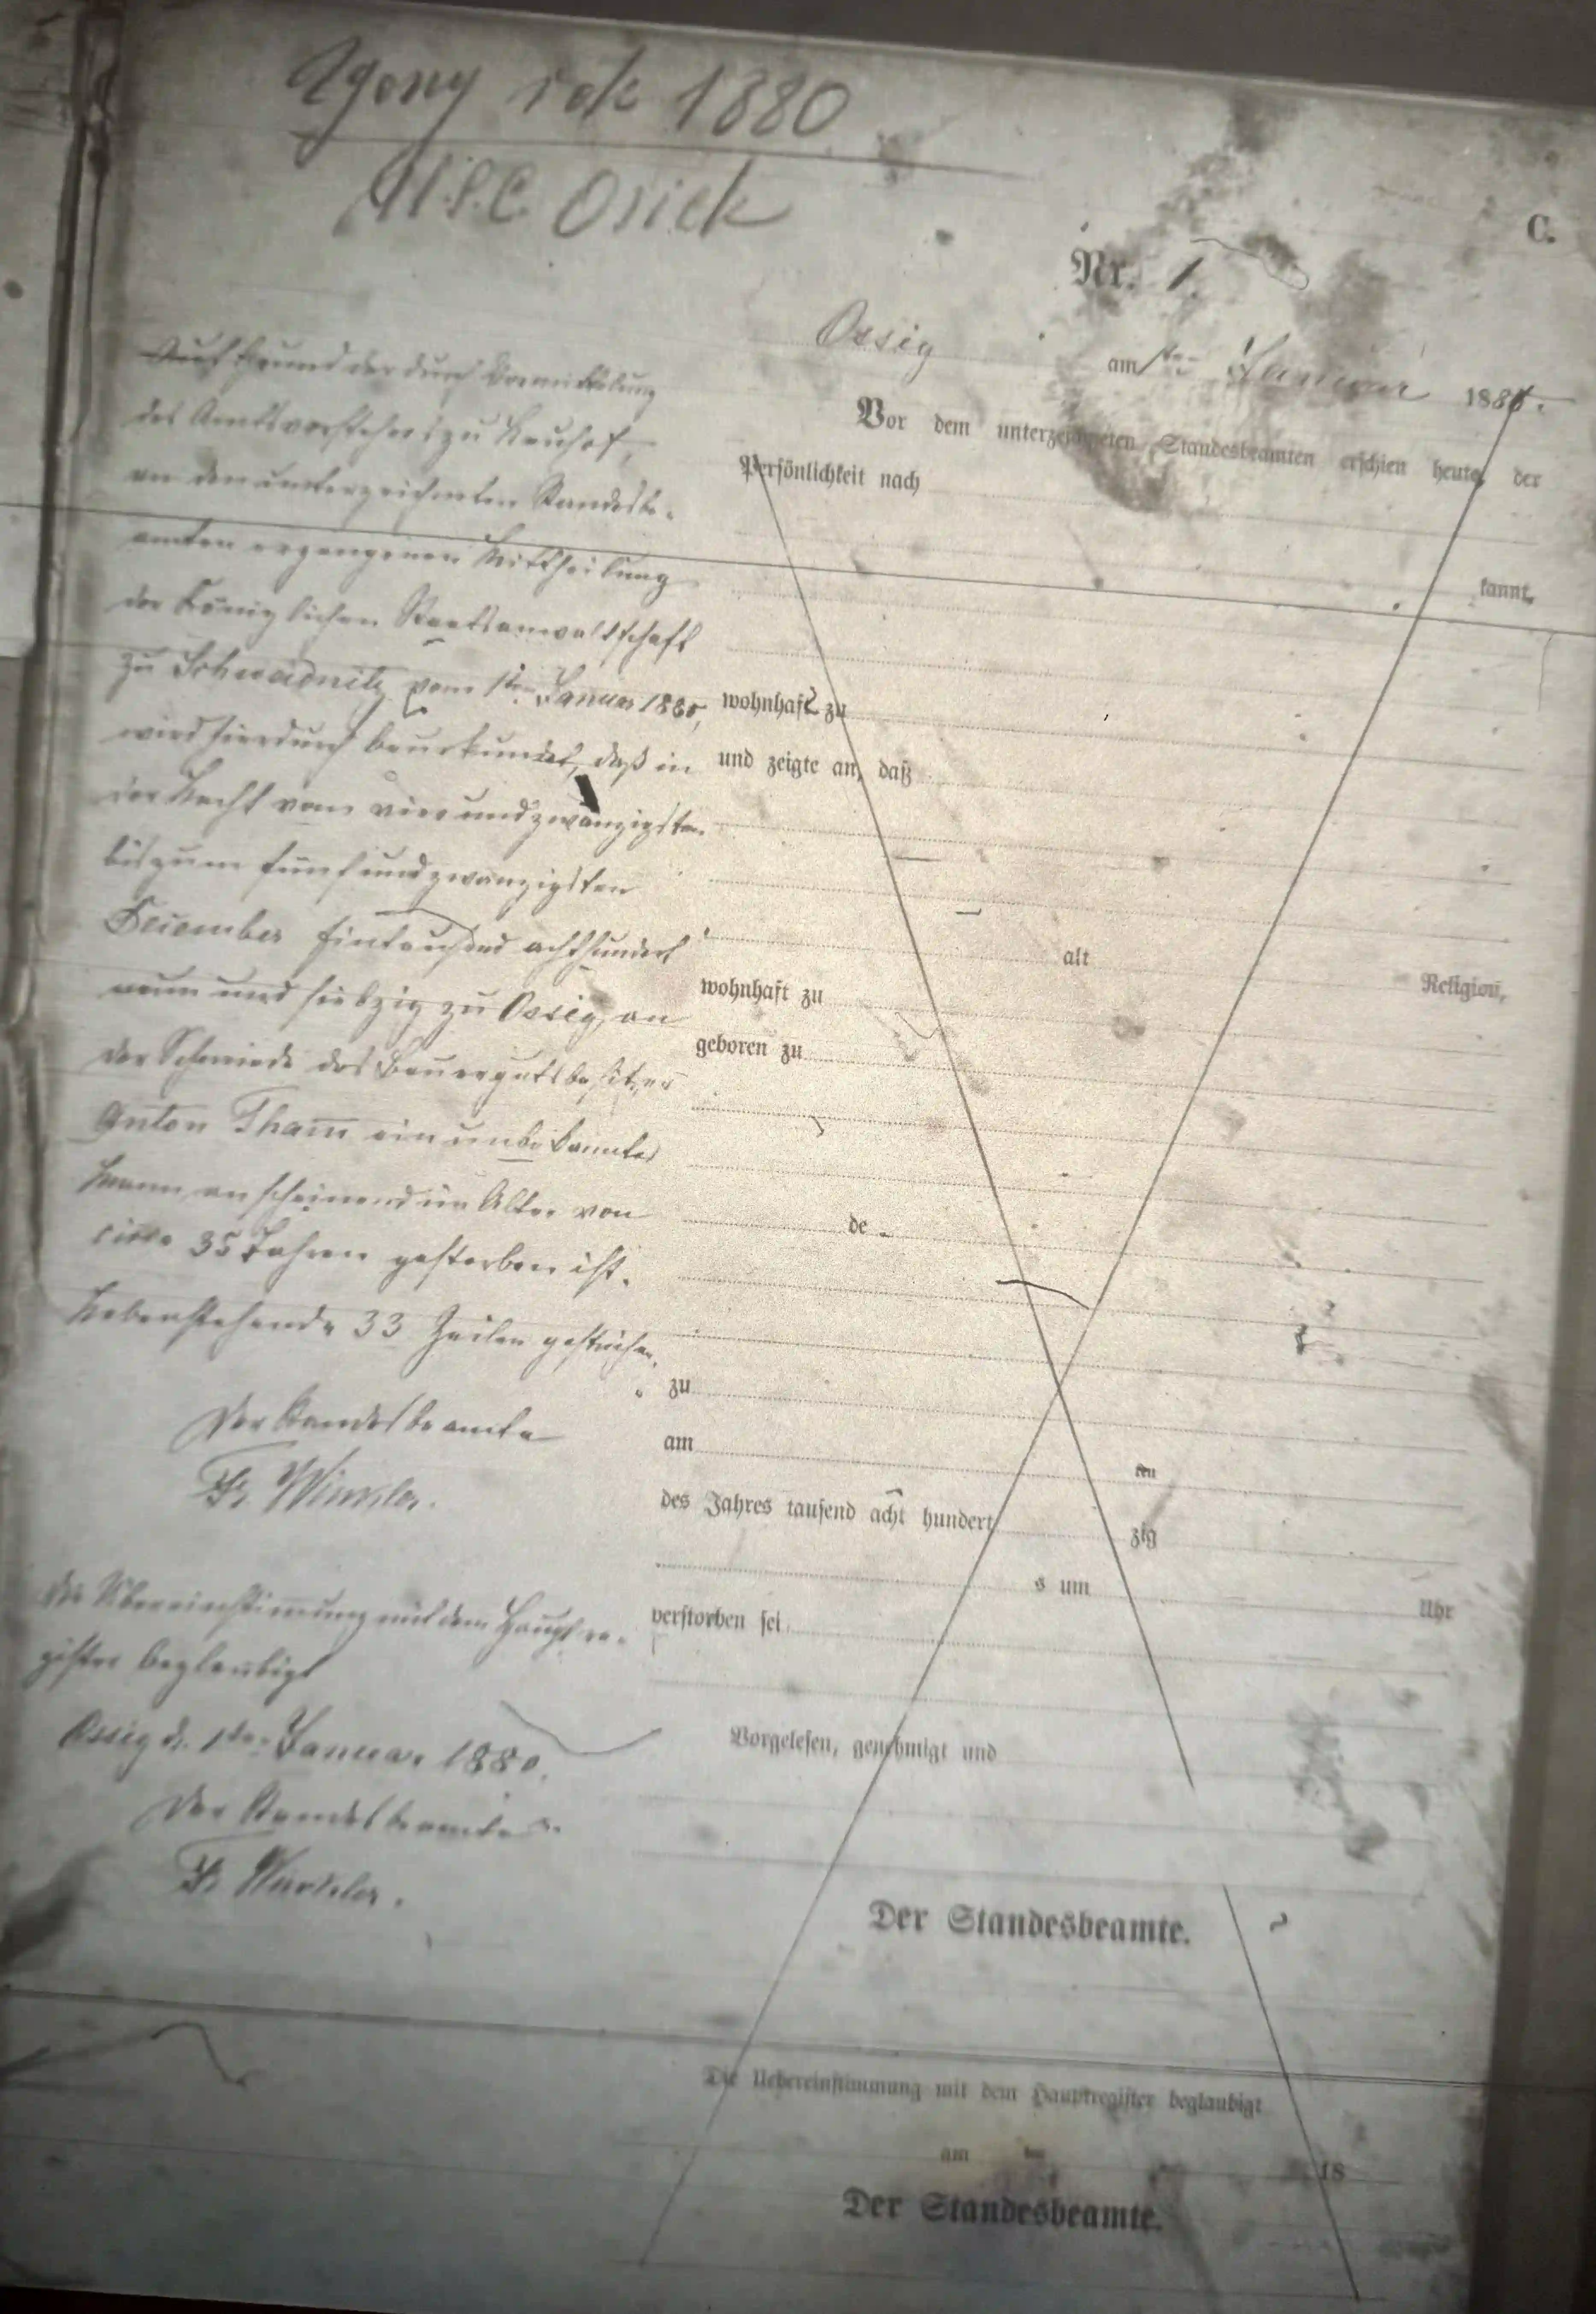 Zgony rok 1880
U.S.C. Osiek
C.
Nr. 1.
Ossig am 1ten Januar 1880.
Vor dem unterzeichneten Standesbeamten erschien heute, der
Persönlichkeit nach
kannt,
wohnhaft zu
und zeigte an, daß
alt Religion,
wohnhaft zu
geboren zu
de
zu
am ten
des Jahres tausend acht hundert zig
s um Uhr
verstorben sei
Vorgelesen, genehmigt und
Der Standesbeamte.
Die Uebereinstimmung mit dem Hauptregister beglaubigt
am ten 18
Der Standesbeamte.
Auf Grund der durch Vermittelung
des Amtsvorstehers zu Neuhof,
an den unterzeichneten Standesbe-
amten ergangenen Mittheilung
der Königlichen Staatsanwaltschaft
zu Schweidnitz vom 1ten Januar 1880,
wird hierdurch beurkundet, daß in
der Nacht vom vierundzwanzigsten
bis zum fünfundzwanzigsten
December Eintausend achthundert
neun und siebzig zu Ossig, an
der Schmiede des Bauergutsbesitzers
Anton Tham ein unbekannter
Mann, anscheinend im Alter von
circa 35 Jahren gestorben ist.
Nebenstehende 33 Zeilen gestrichen.
Der Standesbeamte
Fr. Winkler.
Die Übereinstimmung mit dem Hauptre-
gister beglaubigt
Ossig d. 1ten Januar 1880.
Der Standesbeamte
Fr. Winkler.